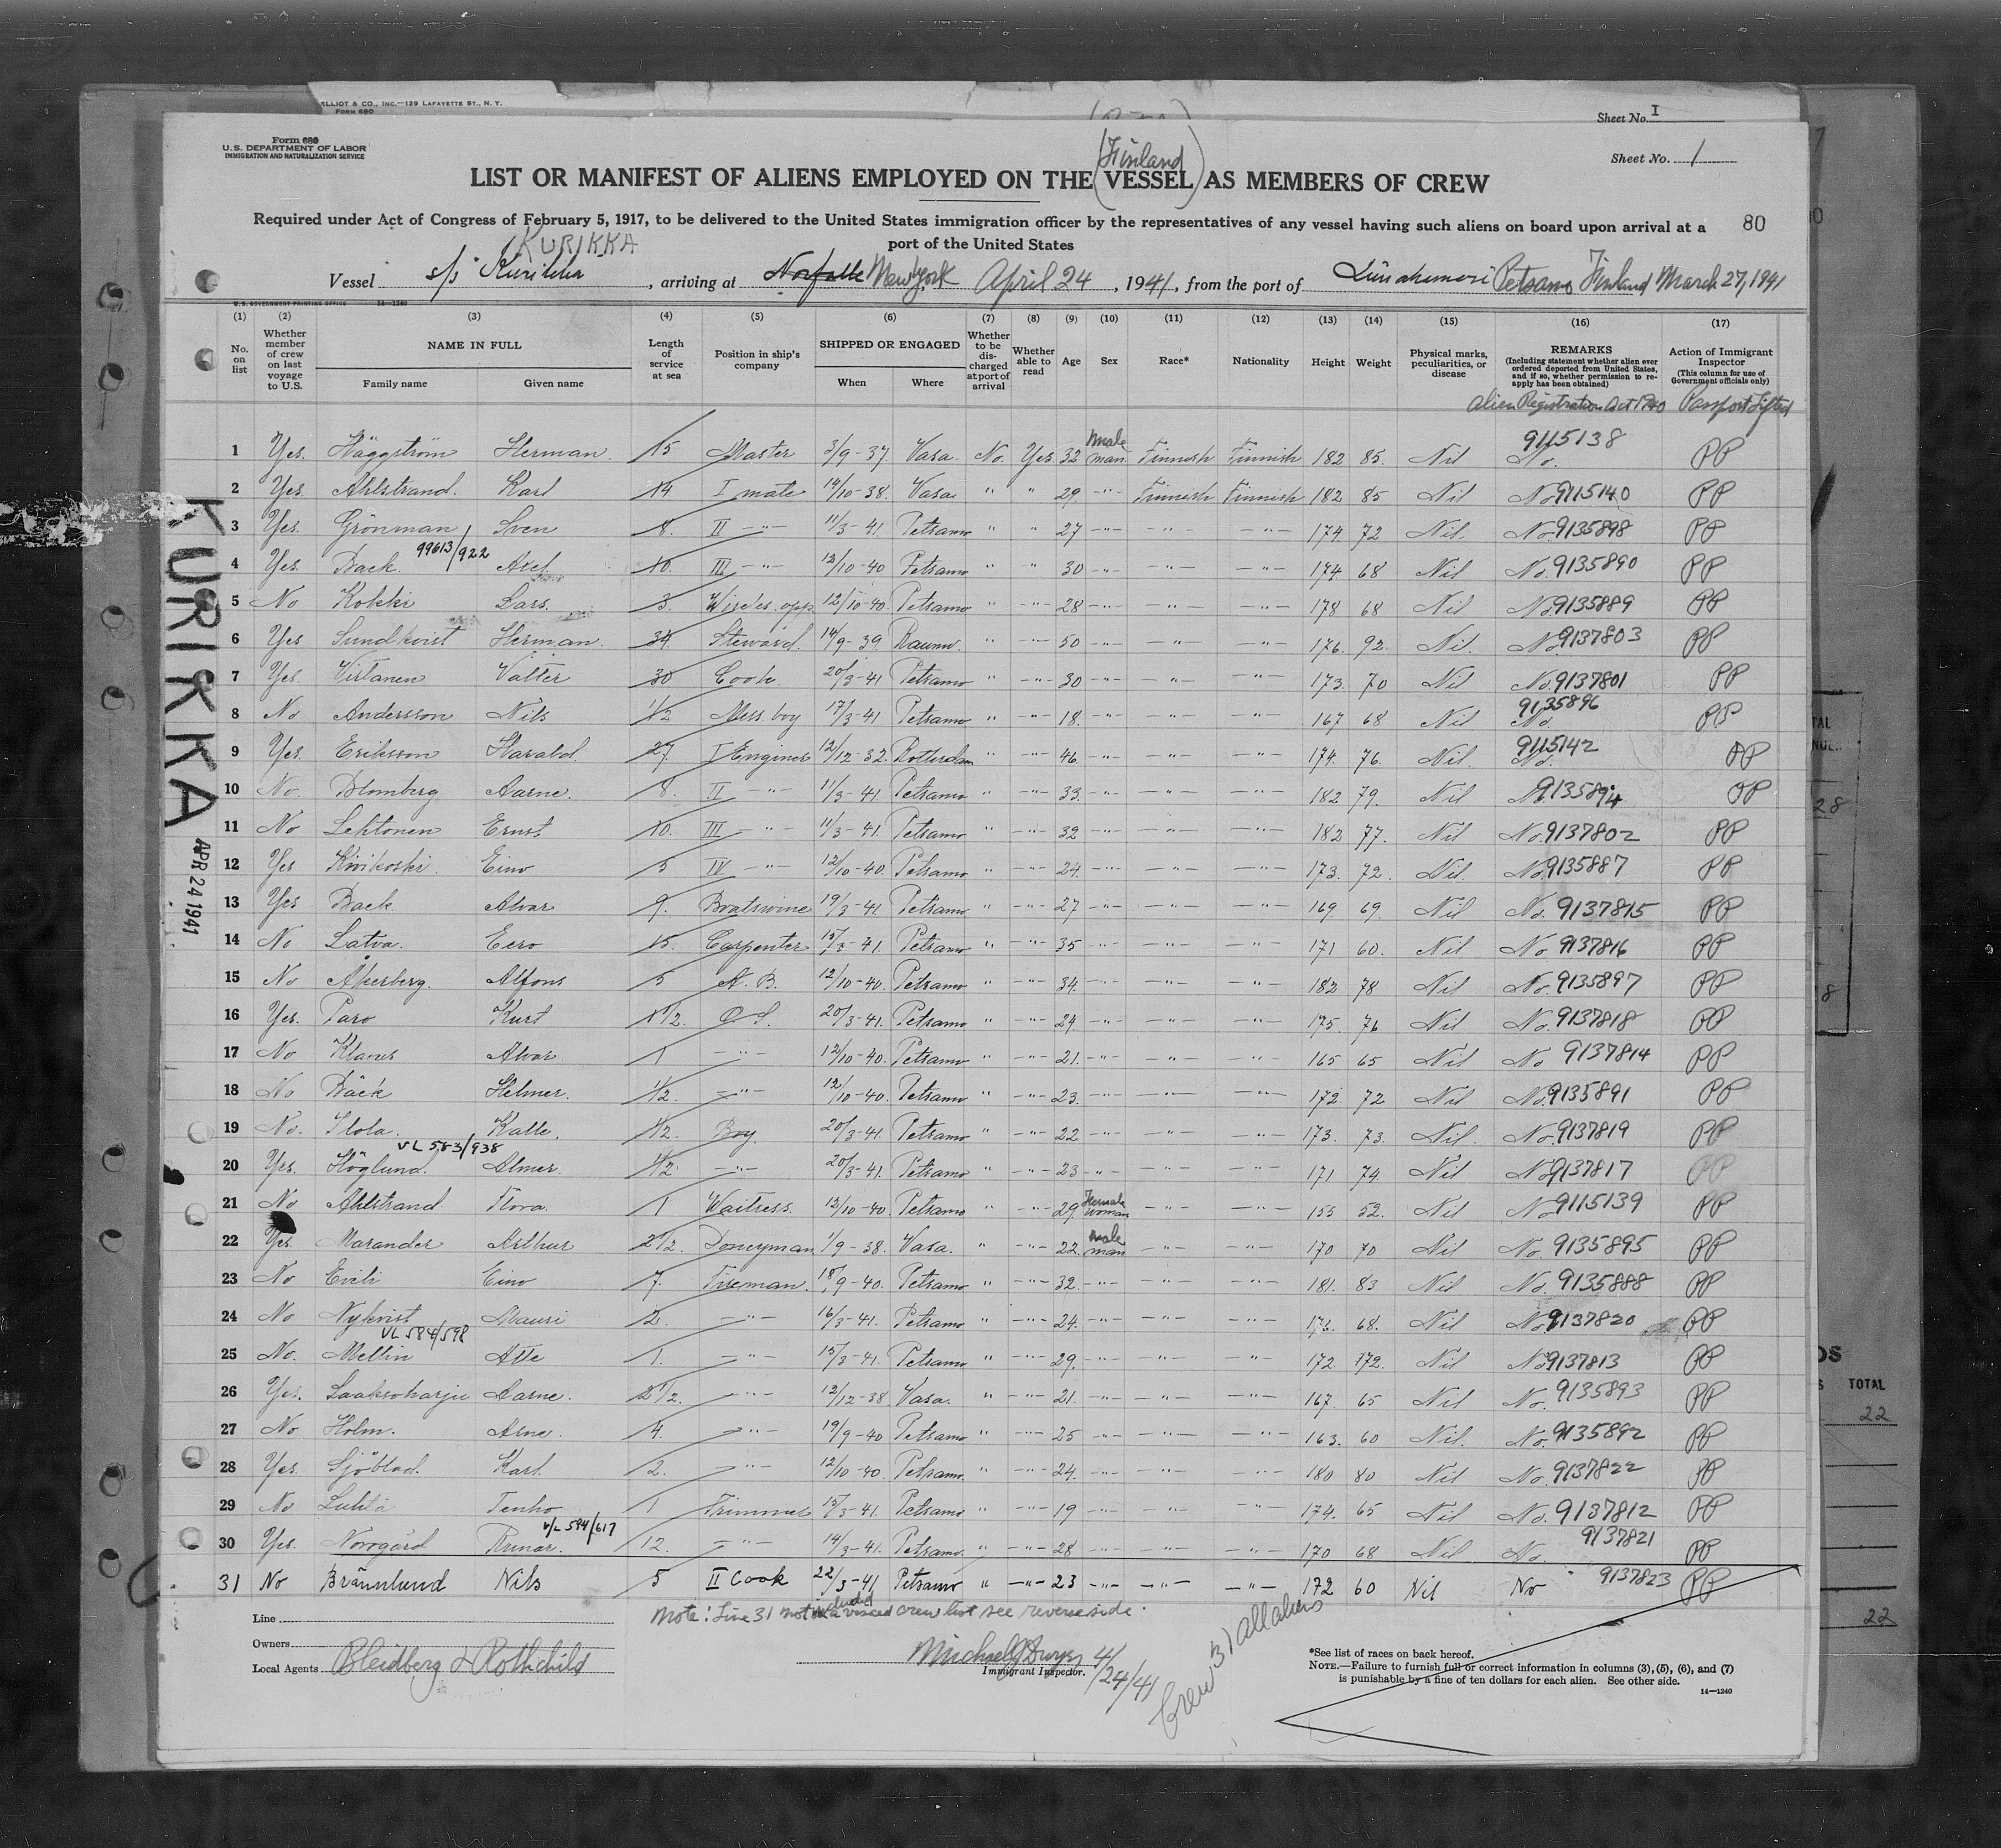 ELLIOT & CO., INC.—129 LAFAYETTE ST., N. Y.
FORM 680
Sheet No. I
Form 680
U. S. DEPARTMENT OF LABOR
IMMIGRATION AND NATURALIZATION SERVICE
Sheet No. 1
(Finland)
LIST OR MANIFEST OF ALIENS EMPLOYED ON THE VESSEL AS MEMBERS OF CREW
Required under Act of Congress of February 5, 1917, to be delivered to the United States immigration officer by the representatives of any vessel having such aliens on board upon arrival at a
port of the United States
80
KURIKKA
Vessel s/s Kurikka, arriving at Norfolk New York April 24, 1941, from the port of Liinahamari Petsamo Finland March 27, 1941
U. S. GOVERNMENT PRINTING OFFICE 14—1240
(1) (2) (3) (4) (5) (6) (7) (8) (9) (10) (11) (12) (13) (14) (15) (16) (17)
No. on list
Whether member of crew on last voyage to U.S.
NAME IN FULL
Family name Given name
Length of service at sea
Position in ship's company
SHIPPED OR ENGAGED
When Where
Whether to be discharged at port of arrival
Whether able to read
Age
Sex
Race*
Nationality
Height
Weight
Physical marks, peculiarities, or disease
REMARKS
(Including statement whether alien ever ordered deported from United States, and if so, whether permission to reapply has been obtained)
Action of Immigrant Inspector
(This column for use of Government officials only)
Alien Registration Act 1940 Passport Lifted
1 Yes. Häggström Herman. 15 Master 3/9-37 Vasa. No. Yes 32 male man. Finnish Finnish 182 85. Nil No. 9115138 PP
2 Yes. Ahlstrand. Karl 14 I mate 14/10-38. Vasa " " 29. -"- Finnish Finnish 182 85 Nil No 9115140 PP
3 Yes. Grönman Sven 8. II -"- 11/3-41. Petsamo " " 27 -"- -"- -"- 174 72 Nil. No 9135898 PP
99613/922
4 Yes. Back. Axel 10. III -"- 12/10-40 Petsamo " " 30 -"- -"- -"- 174. 68 Nil No. 9135890 PP
5 No Kokki Lars. 3. Wireles. opp. 12/10-40. Petsamo " -"- 28 -"- -"- -"- 178 68 Nil No 9135889 PP
6 Yes Sundkvist Herman. 34. Steward. 14/9-39. Raumo. " -"- 50 -"- -"- -"- 176. 92. Nil. No 9137803 PP
7 Yes. Virtanen Valter 30 Cook. 20/3-41 Petsamo " -"- 30 -"- -"- -"- 173. 70 Nil No. 9137801 PP
8 No Andersson Nils 1/2 Mess. boy 17/3-41 Petsamo " -"- 18. -"- -"- -"- 167 68 Nil No 9135896 PP
9 Yes. Eriksson Harald. 27. I Enginer 12/12-32. Rotterdam " -"- 46. -"- -"- -"- 174. 76. Nil. No. 9115142 PP
10 No. Blomberg Aarne. 8. II -"- 11/3-41. Petsamo " -"- 33. -"- -"- -"- 182 79. Nil No 9135894 PP
11 No Lehtonen Ernst 10. III -"- 11/3-41. Petsamo " -"- 32 -"- -"- -"- 182 77. Nil No. 9137802 PP
12 Yes Kivikoski. Eino 5 IV -"- 12/10-40. Petsamo " -"- 24. -"- -"- -"- 173. 72. Nil. No 9135887 PP
13 Yes Back. Alvar 9. Boatswine 19/3-41. Petsamo " -"- 27 -"- -"- -"- 169. 69. Nil No. 9137815 PP
14 No Latva. Eero 15. Carpenter 15/3-41. Petsamo " -"- 35 -"- -"- -"- 171 60. Nil No 9137816 PP
15 No Åkerberg. Alfons 5 A. B. 12/10-40. Petsamo " -"- 34. -"- -"- -"- 182 78 Nil No. 9135897 PP
16 Yes. Paro Kurt 1 1/2. O. S. 20/3-41. Petsamo " -"- 24 -"- -"- -"- 175 76 Nil No. 9137818 PP
17 No Alvar 1 -"- 12/10-40. Petsamo " -"- 21. -"- -"- -"- 165 65 Nil No 9137814 PP
18 No Bäck Helmer. 1/2. -"- 12/10-40. Petsamo " -"- 23. -"- -"- -"- 172. 72 Nil No 9135891 PP
19 No. Ilola. Kalle. 1/2. Boy. 20/3-41. Petsamo " -"- 22 -"- -"- -"- 173. 73. Nil. No. 9137819 PP
VL 583/938
20 Yes. Höglund. Almer. 1/2. -"- 20/3-41. Petsamo " -"- 23 -"- -"- -"- 171 74. Nil No 9137817 PP
21 No Ahlstrand 1 Waitress. 12/10-40. Petsamo " -"- 29. Female woman -"- -"- 155 52. Nil No 9115139 PP
22 Yes. Marander Arthur 2 1/2. Donkeyman 1/9-38. Vasa. " -"- 22. male man -"- -"- 170 70 Nil No. 9135895 PP
23 No Eino 7. Fireman. 18/9-40. Petsamo " -"- 32. -"- -"- -"- 181. 83 Nil No. 9135888 PP
24 No Nykvist Mauri 2. -"- 16/3-41. Petsamo " -"- 24. -"- -"- -"- 68. Nil No 9137820 PP
VL 584/598
25 No. Mellin Atte 1. -"- 15/3-41. Petsamo " -"- 29. -"- -"- -"- 172. 72. Nil No 9137813 PP
26 Yes. Laaksoharju Aarne. 2 1/2. -"- 12/12-38. Vasa. " -"- 21. -"- -"- -"- 167. 65 Nil No. 9135893 PP
27 No Holm. Arne. 4. -"- 19/9-40 Petsamo " -"- 25 -"- -"- -"- 163. 60 Nil. No. 9135892 PP
28 Yes. Sjöblad. Karl. 2. -"- 12/10-40. Petsamo " -"- 24. -"- -"- -"- 180 80 Nil No. 9137822 PP
29 No Luhta Tenho 1 Trimmer 15/3-41. Petsamo " -"- 19 -"- -"- -"- 174. 65 Nil No. 9137812 PP
V/L 594/617
30 Yes. Norrgård Runar. 12. -"- 14/3-41. Petsamo. " -"- 28 -"- -"- -"- 170 68 Nil No. 9137821 PP
31 No Brännlund Nils 5 II Cook 22/3-41 Petsamo " -"- 23 -"- -"- -"- 172 60 Nil No 9137823 PP
Line
Note: Line 31 not included in visaed crew list see reverse side.
Owners
Local Agents Bleidberg & Rothchild
Michael J Dwyer 4/24/41
Immigrant Inspector.
Crew 31 all aliens
*See list of races on back hereof.
NOTE.—Failure to furnish full or correct information in columns (3), (5), (6), and (7)
is punishable by a fine of ten dollars for each alien. See other side.
14—1240
KURIKKA
APR 24 1941
TOTAL
22
22